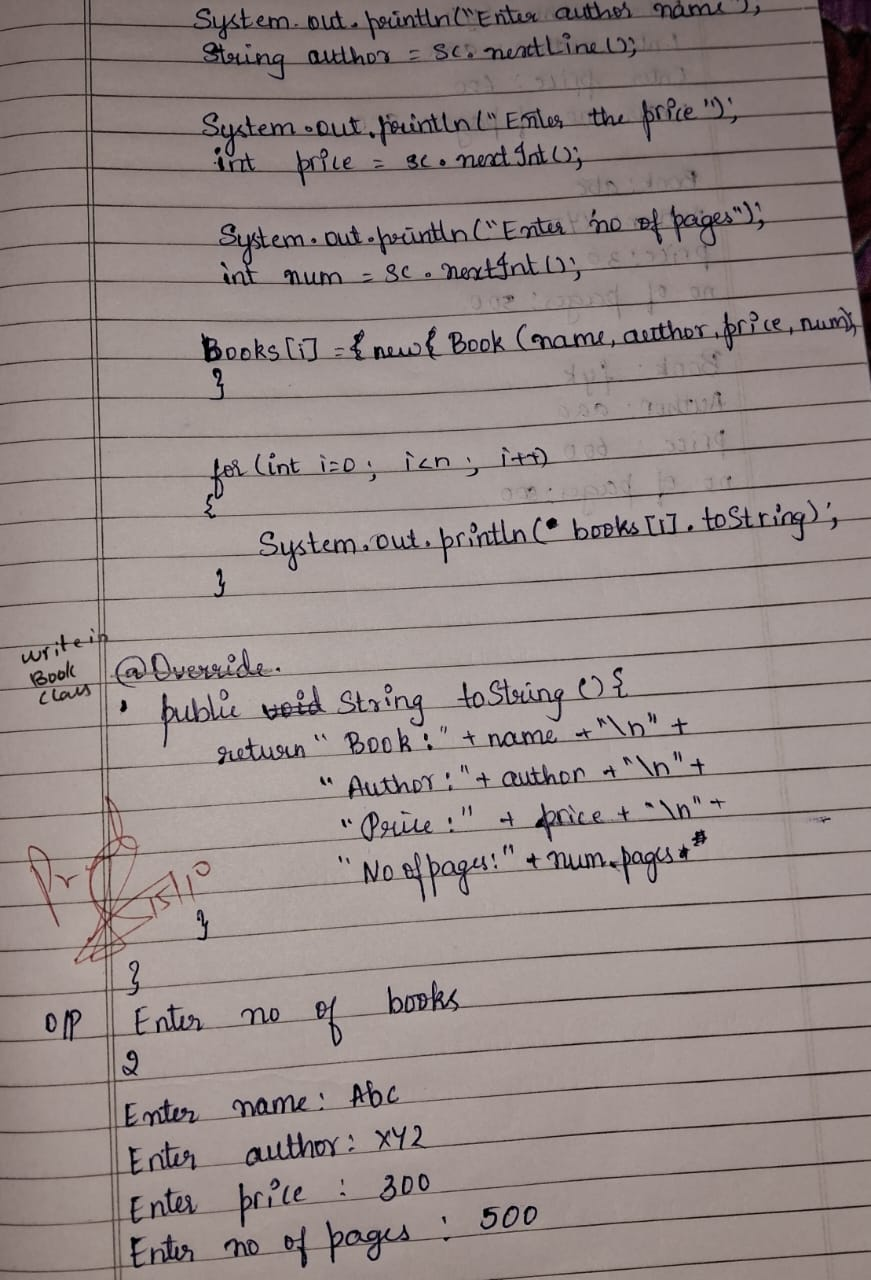 System.out.println("Enter author name");
String author = sc.nextLine();
System.out.println("Enter the price");
int price = sc.nextInt();
System.out.println("Enter no of pages");
int num = sc.nextInt();
Books[i] = { new { Book (name, author, price, num);
}
for (int i=0; i<n; i++)
{
System.out.println( books[i].toString);
}
write in
Book
class
@Override.
public void String toString () {
return " Book:" + name + "\n" +
" Author:" + author + "\n" +
" Price:" + price + "\n" +
" No of pages:" + num.pages
15/10
}
}
O/P Enter no of books
2
Enter name: Abc
Enter author: XYZ
Enter price : 300
Enter no of pages : 500